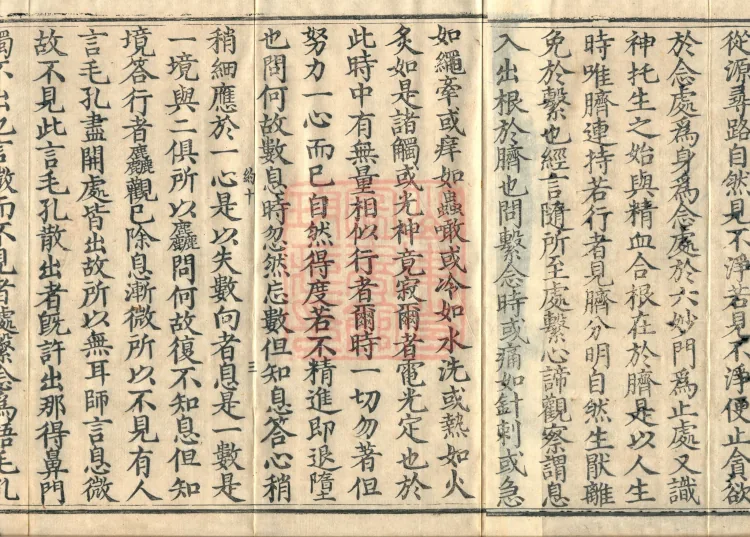 從源尋路自然見不淨若見不淨便止貪欲
於念處為身為念處於六妙門為止處又識
神托生之始與精血合根在於臍是以人生
時唯臍連持若行者見臍分明自然生猒離
免於繫也經言隨所至處繫心諦觀察謂息
入出根於臍也問繫念時或痛如針刺或急
如繩牽或痒如蟲噉或冷如水洗或熱如火
炙如是諸觸或光神竟寂爾者電光定也於
此時中有無量相似行者爾時一切勿著但
努力一心而已自然得度若不精進即退墮
也問何故數息時忽然忘數但知息荅心稍
稍細應於一心是以失數向者息是一數是
一境與二俱所以麤問何故復不知息但知
境荅行者麤觀已除息漸微所以不見有人
言毛孔盡開處皆出故所以無耳師言息微
故不見此言毛孔散出者旣許出那得鼻門
獨不出乃言微而不見者處繫念為語毛孔
三